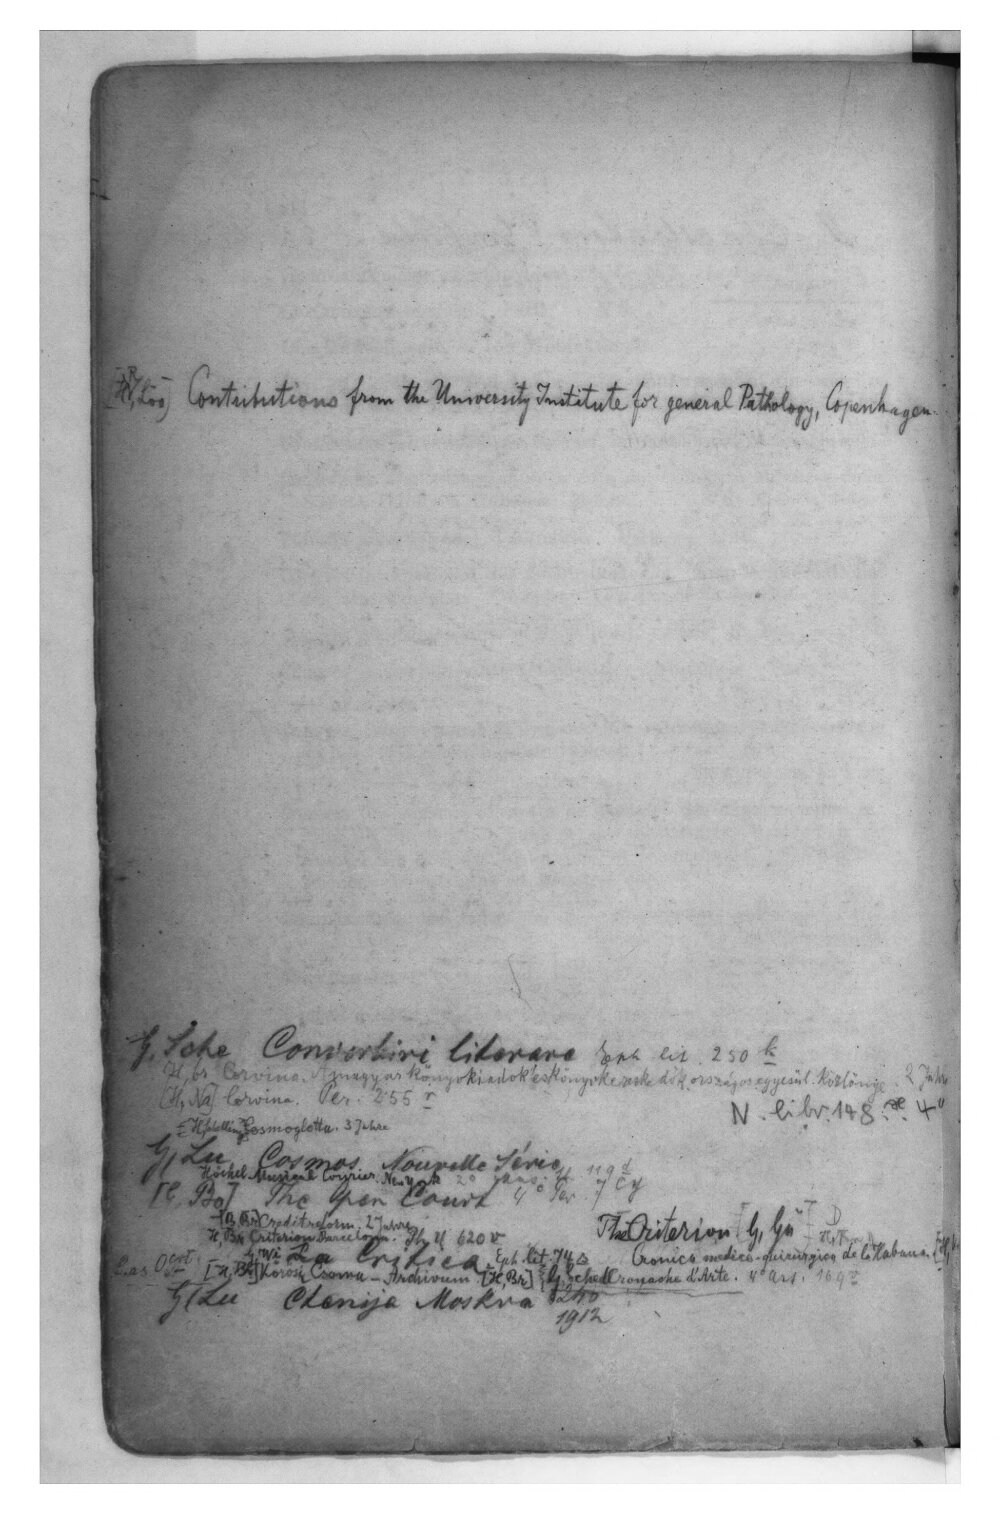 [H, Loo] Contributions from the University Institute for general Pathology, Copenhagen.
G, Sche Convorbiri literare Eph. lit. 250 k
H, Br Corvina. A magyar könyvkiadók és könyvkereskedők országos egyesül. közlönye. 2 Jahre
[H, Na] Corvina. Per. 255 r
N. libr. 148 4°
Cosmoglotta. 3 Jahre
G, Lu Cosmos Nouvelle Série 119 d
Höchel Musical Courier New York 2°
[C, Bo] The Open Court 4° Per. 7 cy
[B, Br] Creditreform. 2 Jahre
H, Br Criterion Barcelona. 4 620 v
The Criterion [G, Gu]
G, Wi La Critica Eph. lit. 74
Cronica medico-quirurgica de la Habana.
2. as Ost [H, Br] Körösi Csoma-Archivum [H, Br] G, Sche Cronache d'Arte. 4° art. 169
G, Lu Ctenija Moskva 240
1912